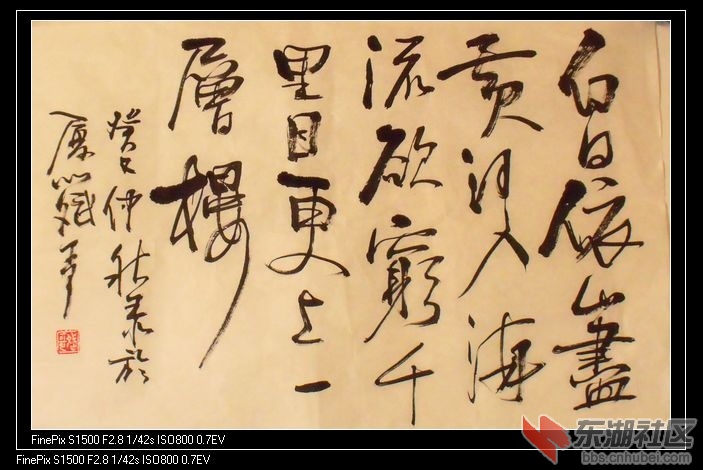 白日依山盡
黃河入海
流欲窮千
里目更上一
層樓
癸巳仲秋录於
FinePix S1500 F2.8 1/42s ISO800 0.7EV
FinePix S1500 F2.8 1/42s ISO800 0.7EV
东湖社区
bbs.cnhubei.com